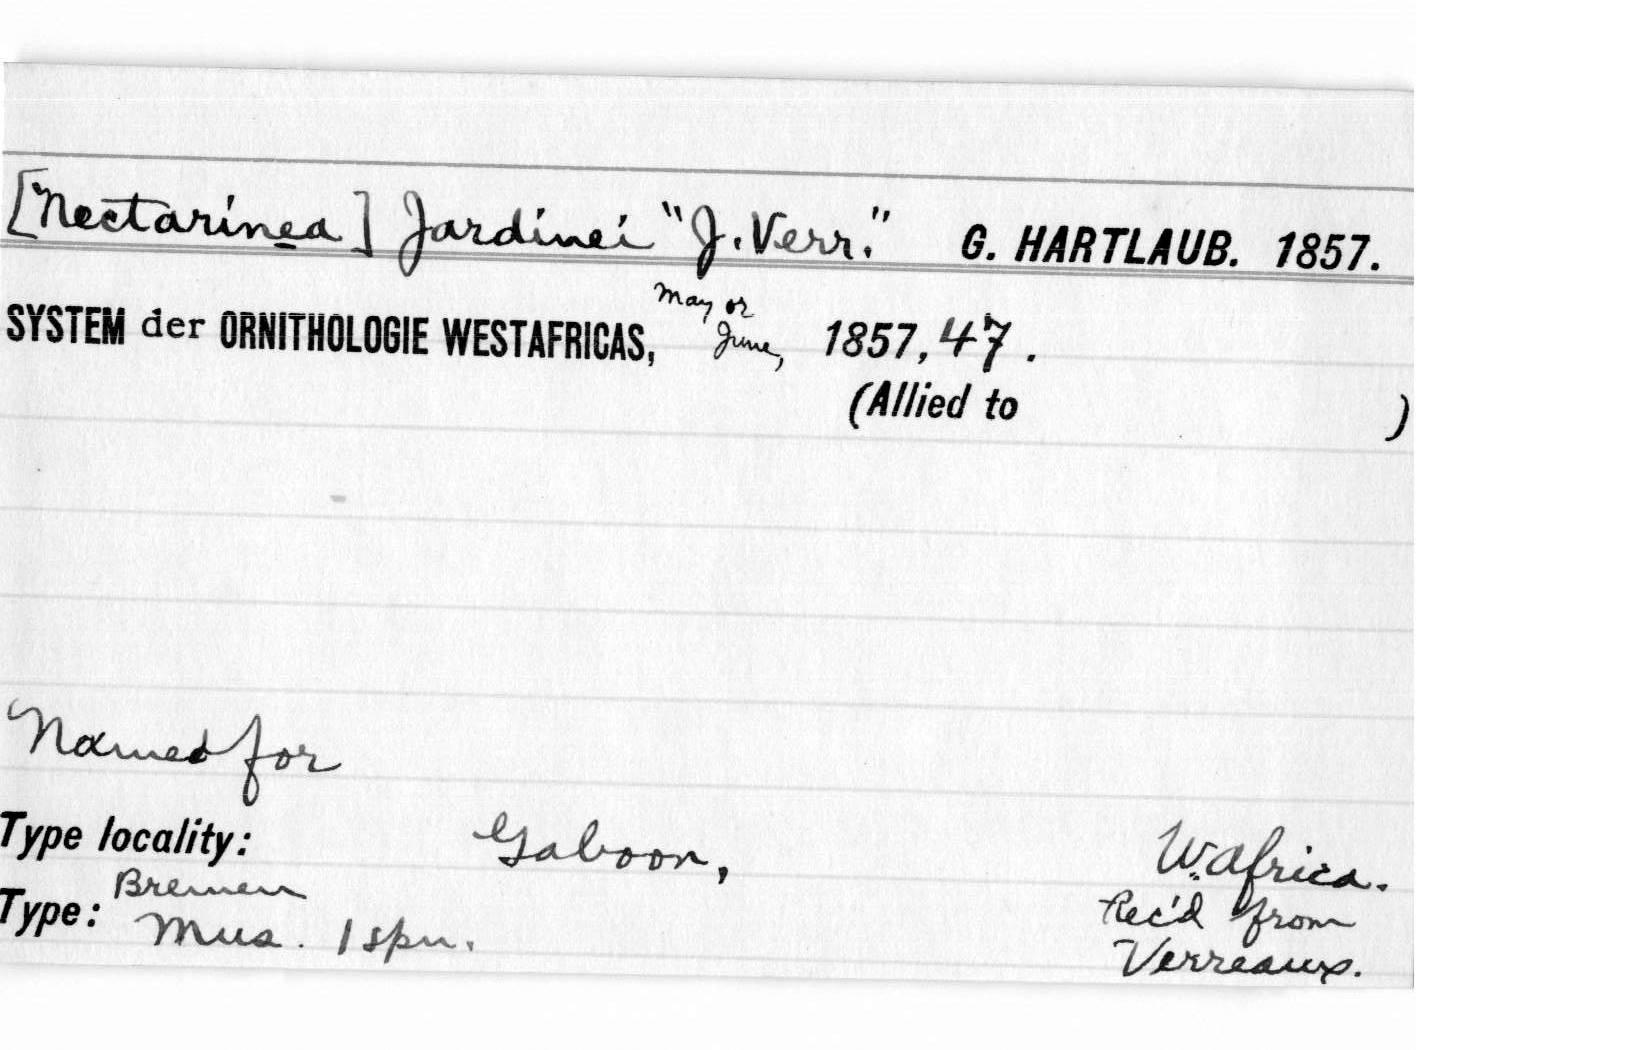 [Nectarinea] Jardinei "J. Verr." G. HARTLAUB. 1857.
SYSTEM der ORNITHOLOGIE WESTAFRICAS, May or June, 1857, 47.
(Allied to )
Named for
Type locality: Gaboon, W. Africa.
Type: Bremen Mus. 1 spn. Rec'd from
Verreaux.